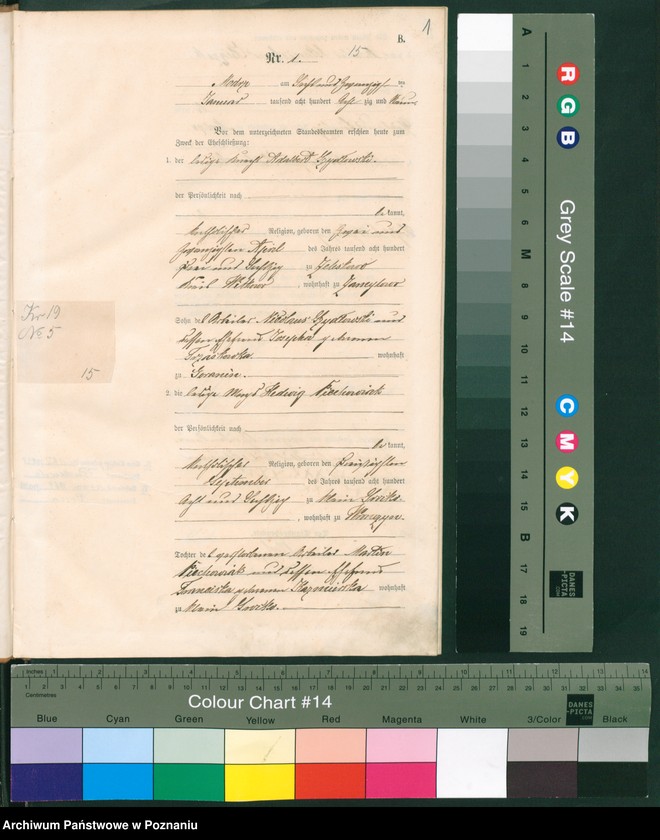 B.
1
Nr. 1.
15
Modrze am sechs und zwanzigsten
Januar tausend acht hundert acht zig und neun
Vor dem unterzeichneten Standesbeamten erschien heute zum
Zweck der Eheschließung:
1. der ledige Knecht Adalbert Szydlowski.
der Persönlichkeit nach
be kannt,
katholischer Religion, geboren den zwei und
zwanzigsten April des Jahres tausend acht hundert
drei und sechzig zu
Kreis, wohnhaft zu
Sohn des Arbeiters Nikolaus Szydlowski und
dessen Ehefrau Josepha geborenen
wohnhaft
zu Granowo.
2. die ledige Magd Hedwig Piechowiak
der Persönlichkeit nach
be kannt,
katholischer Religion, geboren den dreißigsten
September des Jahres tausend acht hundert
acht und sechzig zu Klein
, wohnhaft zu
Tochter des gestorbenen Arbeiter Martin
Piechowiak und dessen Ehefrau
Franciska geborenen Kazmierska wohnhaft
zu Klein
No 5
15
A 1 2 3 4 5 6 M 8 9 10 11 12 13 14 15 B 17 18 19
R G B
Grey Scale #14
C M Y K
DANES
-PICTA
.COM
Inches 1 2 3 4 5 6 7 8 9 10 11 12 13 14
Centimetres
1 2 3 4 5 6 7 8 9 10 11 12 13 14 15 16 17 18 19 20 21 22 23 24 25 26 27 28 29 30 31 32 33 34 35
Colour Chart #14
DANES
-PICTA
.COM
Blue Cyan Green Yellow Red Magenta White 3/Color Black
Archiwum Państwowe w Poznaniu